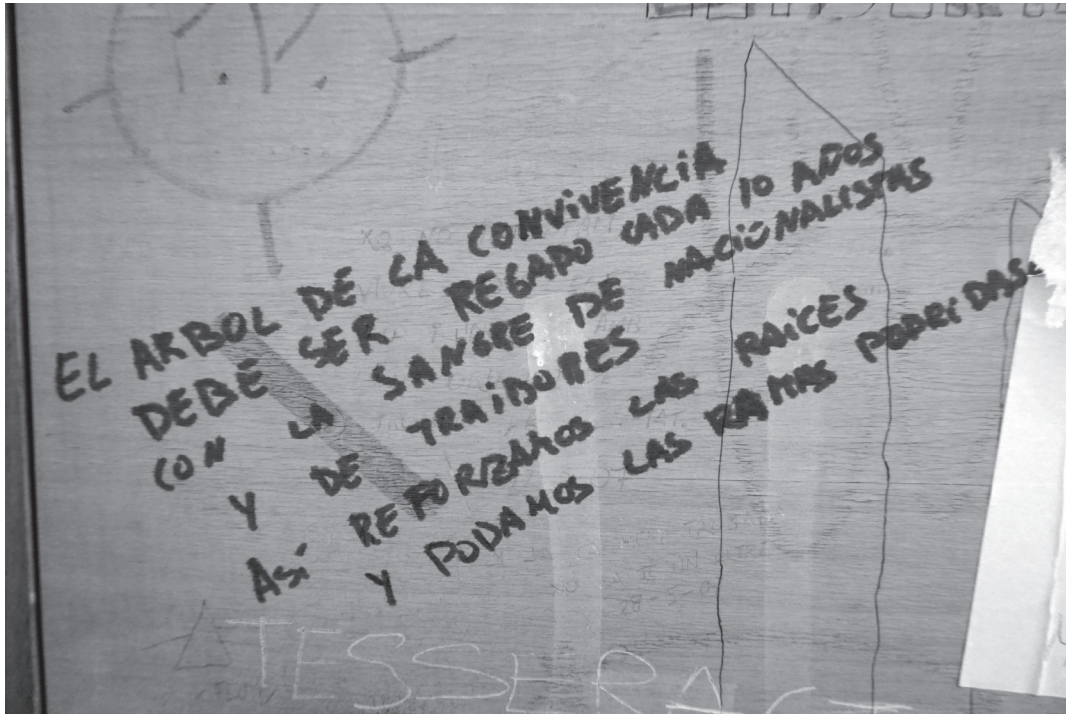 EL ARBOL DE LA CONVIVENCIA
DEBE SER REGADO CADA 10 AÑOS
CON LA SANGRE DE NACIONALISTAS
Y DE TRAIDORES
ASÍ REFORZAMOS LAS RAICES
Y PODAMOS LAS RAMAS PODRIDAS
TESSERACT